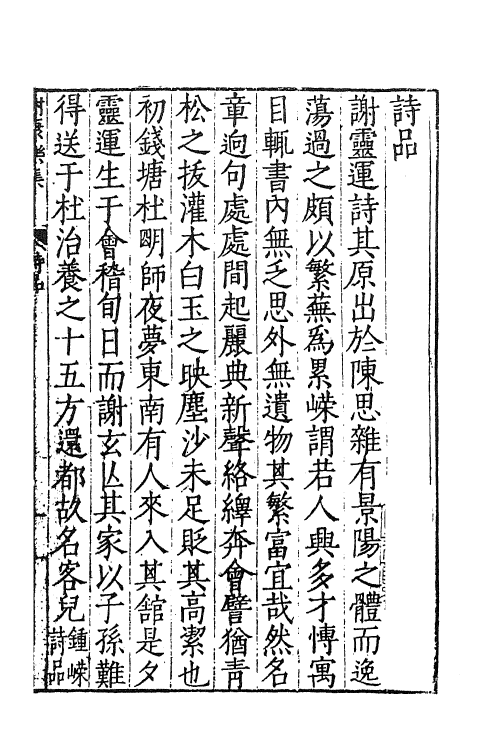 詩品
謝靈運詩其原出於陳思雜有景陽之體而逸
蕩過之頗以繁蕪為累嶸謂若人興多才愽寓
目輒書內無乏思外無遺物其繁富宜哉然名
章逈句處處間起麗典新聲絡繹奔會譬猶青
松之拔灌木白玉之映塵沙未足貶其高潔也
初錢塘杜明師夜夢東南有人來入其舘是夕
靈運生于會稽旬日而謝玄亾其家以子孫難
得送于杜治養之十五方還都故名客兒鍾嶸詩品